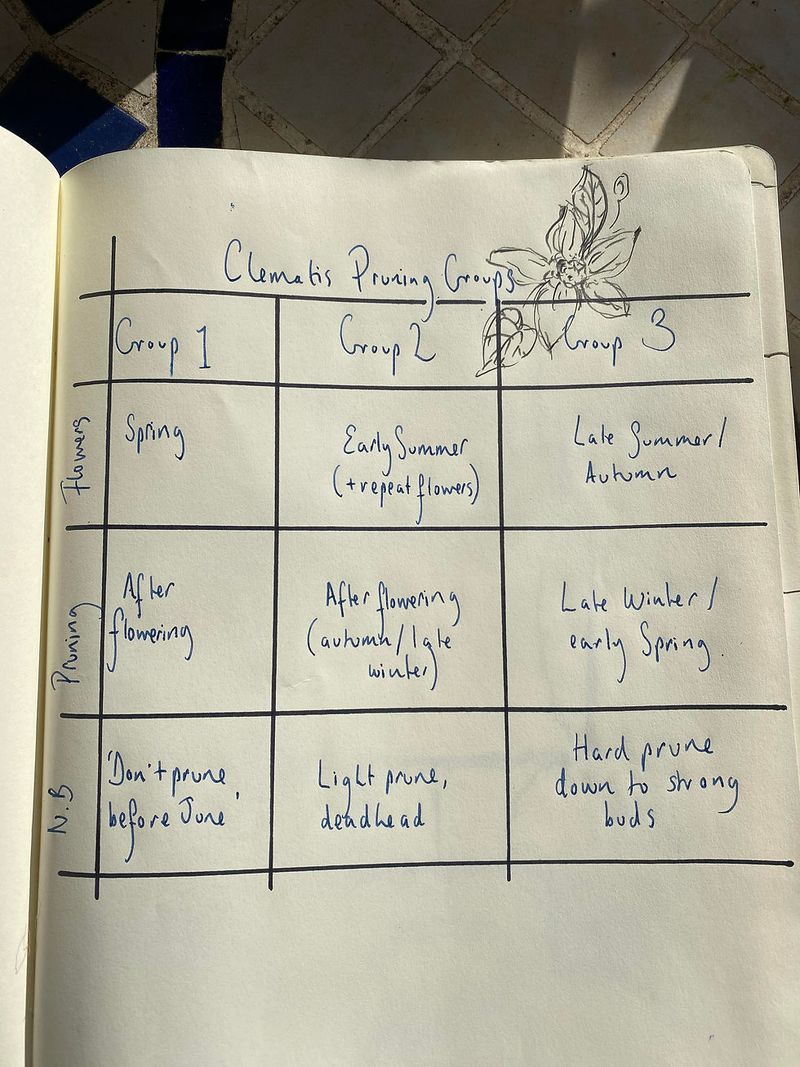 Clematis Pruning Groups
Group 1
Group 2
Group 3
Flowers
Spring
Early Summer
(+repeat flowers)
Late Summer/
Autumn
Pruning
After
flowering
After flowering
(autumn/late
winter)
Late Winter/
early Spring.
N.B
'Don't prune
before June'
Light prune,
deadhead
Hard prune
down to strong
buds